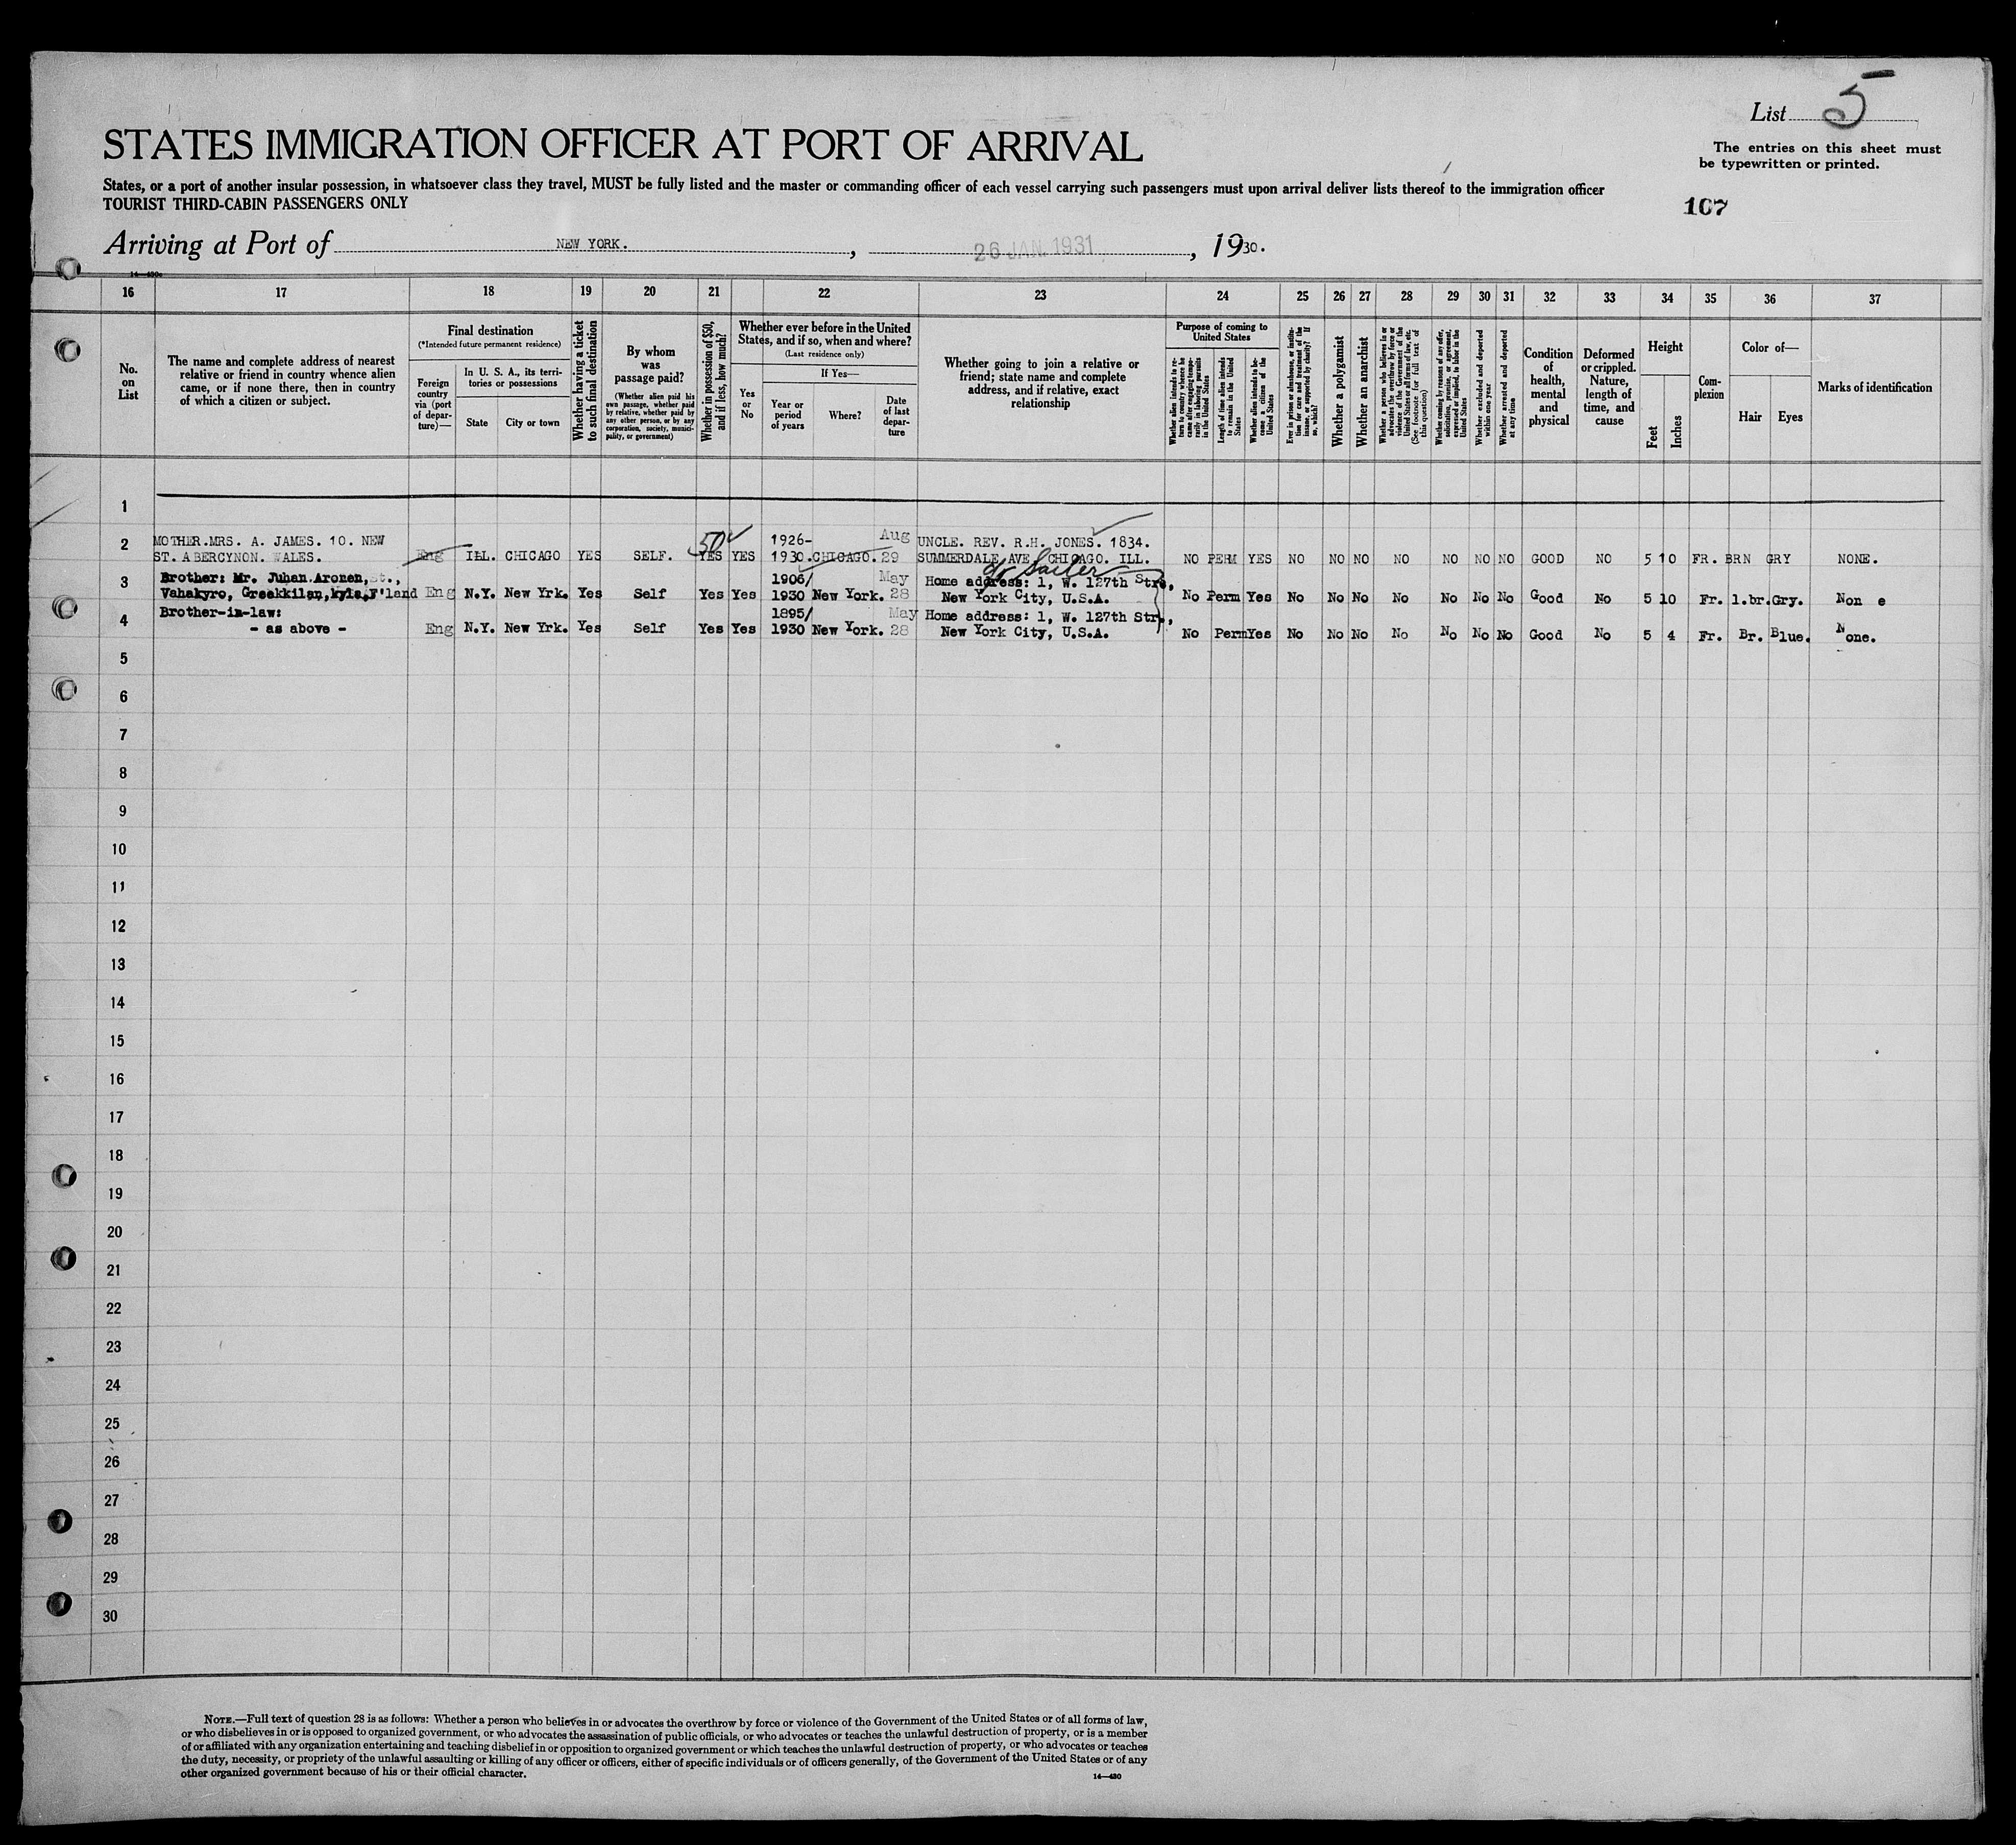 List 5
STATES IMMIGRATION OFFICER AT PORT OF ARRIVAL
The entries on this sheet must
be typewritten or printed.
States, or a port of another insular possession, in whatsoever class they travel, MUST be fully listed and the master or commanding officer of each vessel carrying such passengers must upon arrival deliver lists thereof to the immigration officer
TOURIST THIRD-CABIN PASSENGERS ONLY
107
Arriving at Port of NEW YORK. , 26 JAN 1931 , 1930.
14—430
16 17 18 19 20 21 22 23 24 25 26 27 28 29 30 31 32 33 34 35 36 37
No.
on
List
The name and complete address of nearest
relative or friend in country whence alien
came, or if none there, then in country
of which a citizen or subject.
Final destination
(*Intended future permanent residence)
Foreign
country
via (port
of depar-
ture)—
In U. S. A., its terri-
tories or possessions
State
City or town
Whether having a ticket
to such final destination
By whom
was
passage paid?
(Whether alien paid his
own passage, whether paid
by relative, whether paid by
any other person, or by any
corporation, society, munici-
pality, or government)
Whether in possession of $50,
and if less, how much?
Whether ever before in the United
States, and if so, when and where?
(Last residence only)
Yes
or
No
If Yes—
Year or
period
of years
Where?
Date
of last
depar-
ture
Whether going to join a relative or
friend; state name and complete
address, and if relative, exact
relationship
Purpose of coming to
United States
Whether alien intends to re-
turn to country whence he
came after engaging tempo-
rarily in laboring pursuits
in the United States
Length of time alien intends
to remain in the United
States
Whether alien intends to be-
come a citizen of the
United States
Ever in prison or almshouse, or institu-
tion for care and treatment of the
insane, or supported by charity? If
so, which?
Whether a polygamist
Whether an anarchist
Whether a person who believes in or
advocates the overthrow by force or
violence of the Government of the
United States or all forms of law, etc.
(See footnote for full text of
this question)
Whether coming by reasons of any offer,
solicitation, promise, or agreement,
expressed or implied, to labor in the
United States
Whether excluded and deported
within one year
Whether arrested and deported
at any time
Condition
of
health,
mental
and
physical
Deformed
or crippled.
Nature,
length of
time, and
cause
Height
Feet
Inches
Com-
plexion
Color of—
Hair Eyes
Marks of identification
1
50 1926- Aug
2 MOTHER.MRS. A. JAMES. 10. NEW UNCLE. REV. R.H. JONES. 1834.
ST. ABERCYNON. WALES. Eng ILL. CHICAGO YES SELF. YES YES 1930. CHICAGO. 29 SUMMERDALE AVE CHICAGO. ILL. NO PERM YES NO NO NO NO NO NO NO GOOD NO 5 10 FR. BRN GRY NONE.
3 Brother: Mr. Juhan Aronen, st., 1906/ May Home address: 1, W. 127th Str.,
Vahakyro, Greekkilan, kyla, F'land Eng N.Y. New Yrk. Yes Self Yes Yes 1930 New York. 28 New York City, U.S.A. No Perm Yes No No No No No No No Good No 5 10 Fr. l.br. Gry. Non e
4 Brother-in-law: 1895/ May Home address: 1, W. 127th Str.,
- as above - Eng N.Y. New Yrk. Yes Self Yes Yes 1930 New York. 28 New York City, U.S.A. No Perm Yes No No No No No No No Good No 5 4 Fr. Br. Blue. None.
5
6
7
8
9
10
11
12
13
14
15
16
17
18
19
20
21
22
23
24
25
26
27
28
29
30
NOTE.—Full text of question 28 is as follows: Whether a person who believes in or advocates the overthrow by force or violence of the Government of the United States or of all forms of law,
or who disbelieves in or is opposed to organized government, or who advocates the assassination of public officials, or who advocates or teaches the unlawful destruction of property, or is a member
of or affiliated with any organization entertaining and teaching disbelief in or opposition to organized government or which teaches the unlawful destruction of property, or who advocates or teaches
the duty, necessity, or propriety of the unlawful assaulting or killing of any officer or officers, either of specific individuals or of officers generally, of the Government of the United States or of any
other organized government because of his or their official character.
14—430